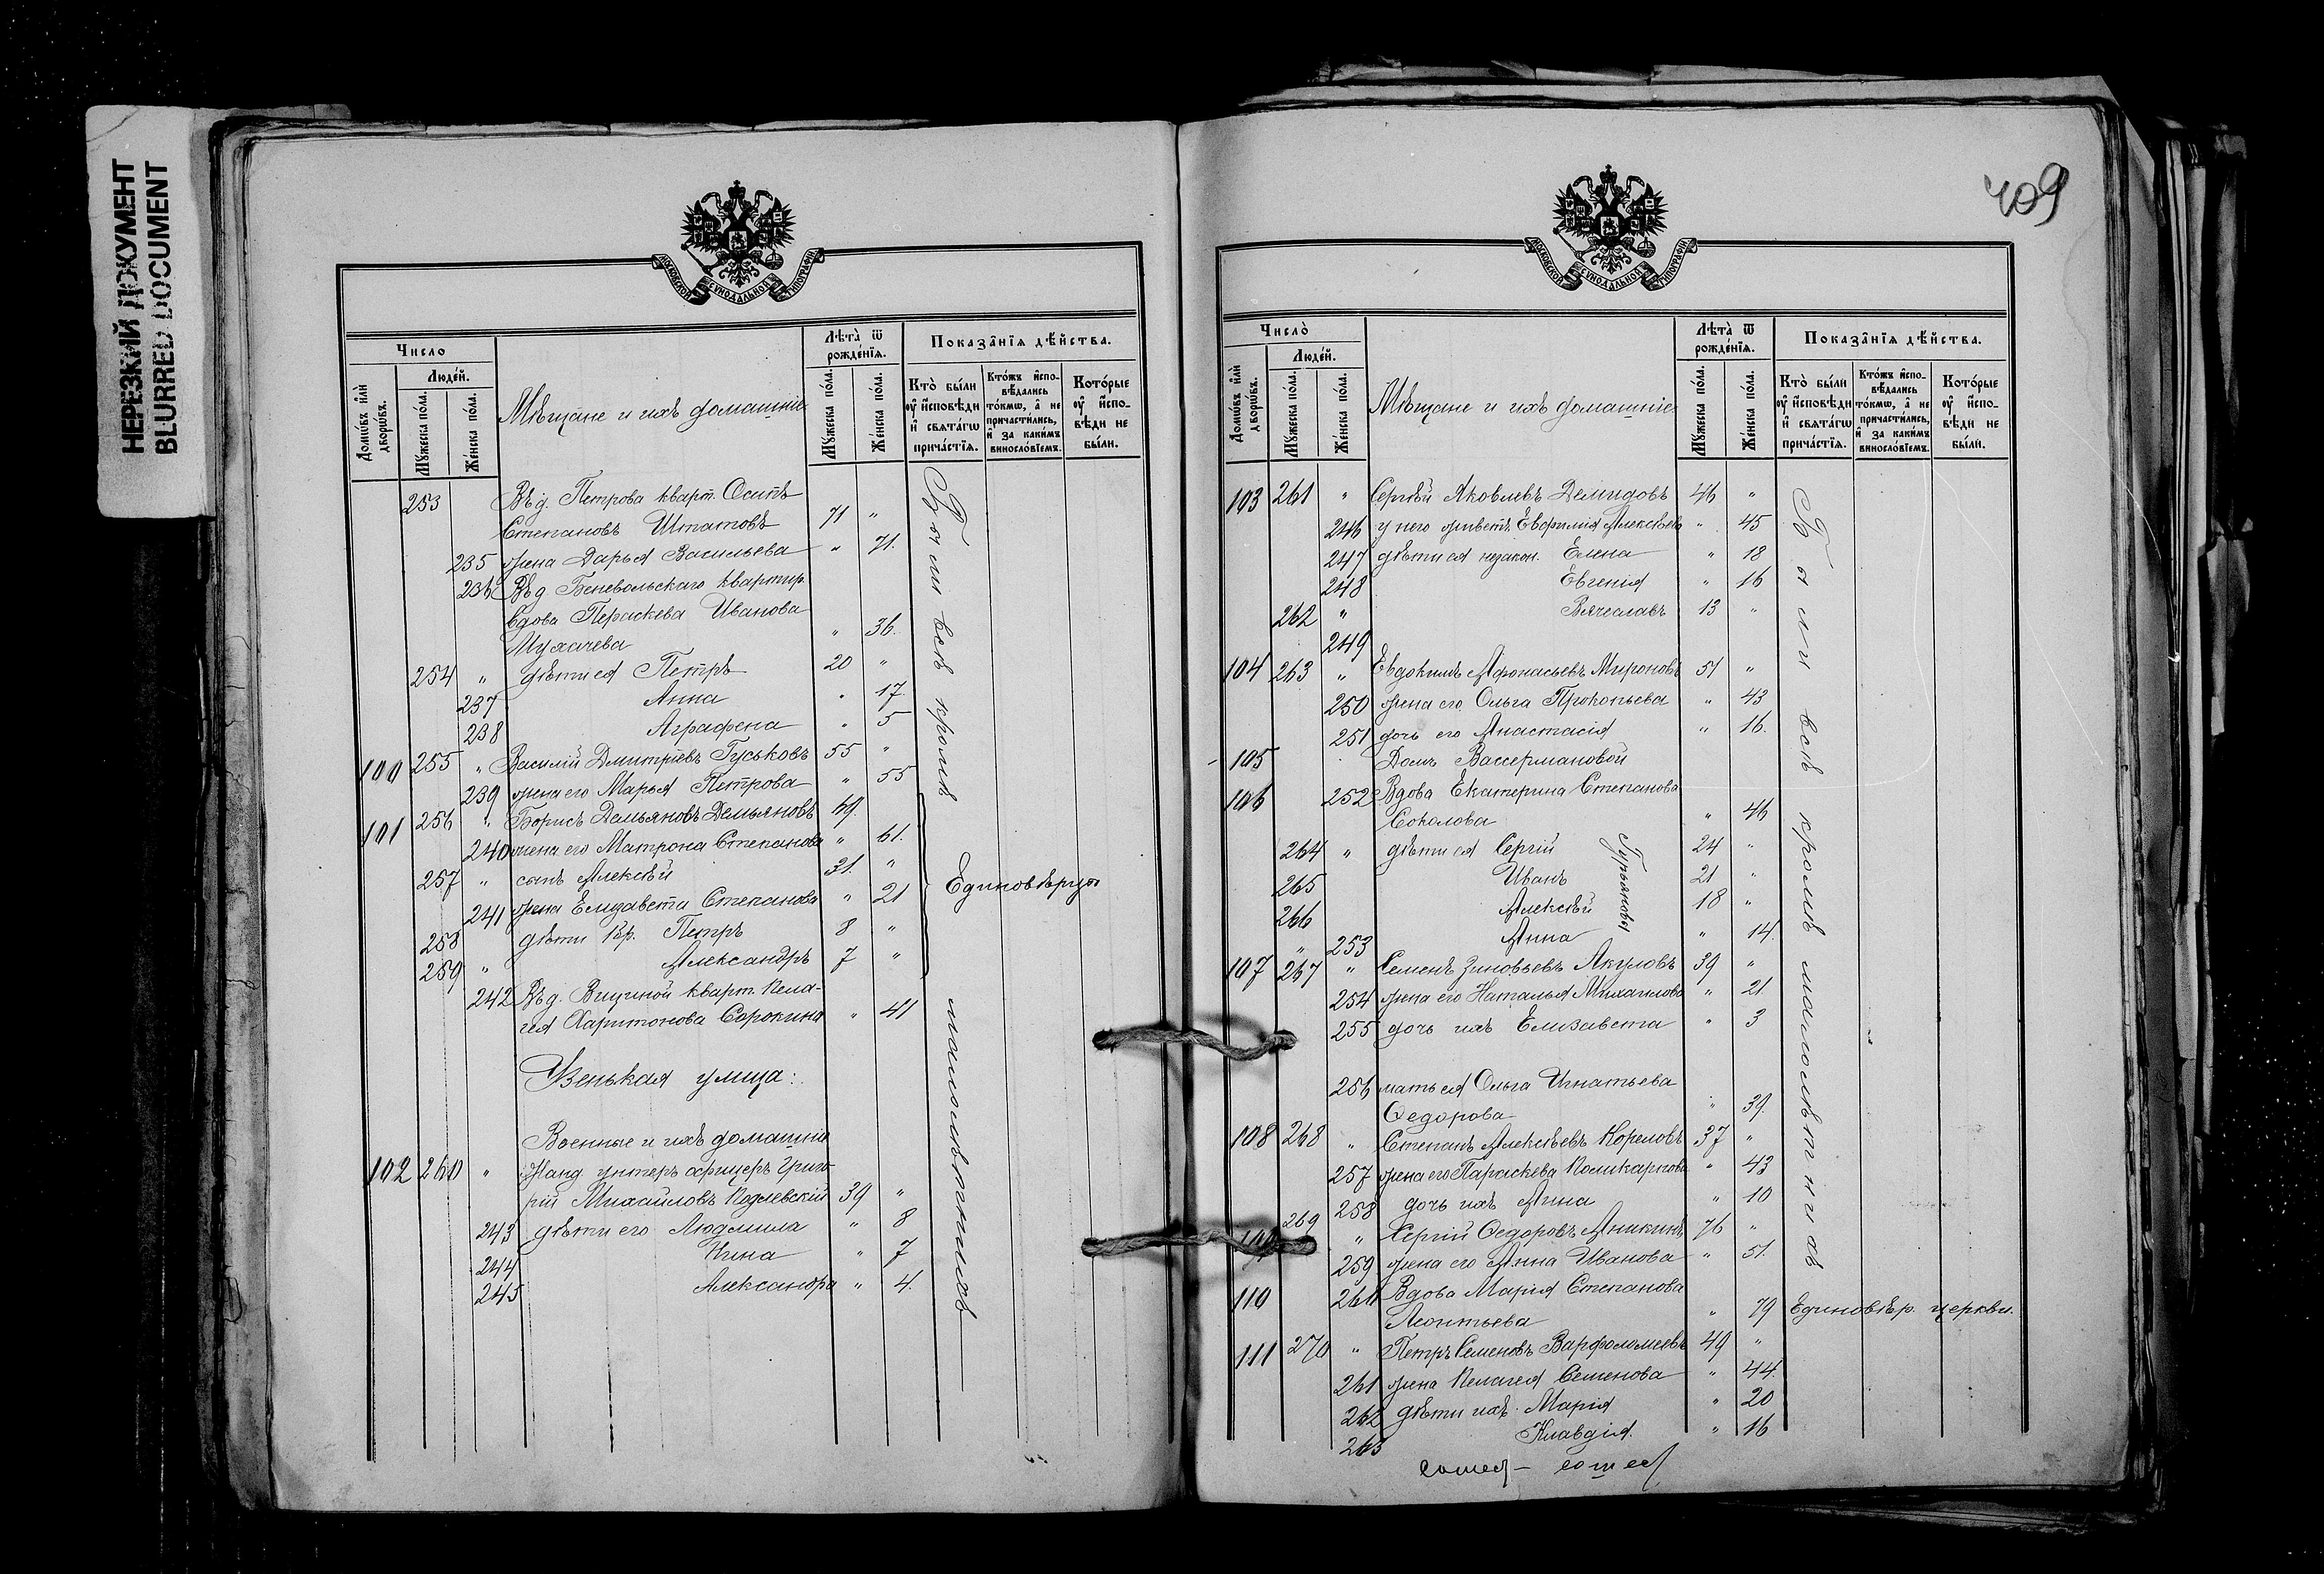 НЕРЕЗКИЙ ДОКУМЕНТ
BLURRED DOCUMENT
МОСКОВСКОЙ СѴНОДАЛЬНОЙ ТИПОГРАФІИ
Число
Людей.
Домѡвъ или дворѡвъ.
Мꙋжеска пола.
Женска пола.
Мѣщане и ихъ домашніе
Лѣта ѿ рожденія.
Мꙋжеска пола.
Женска пола.
Показанія дѣйства.
Кто были ᲂу исповѣди и свѧтагѡ причастія.
Ктожъ исповѣдались токмѡ, а не причастились, и за какимъ винословіемъ.
Которые ᲂу исповѣди не были.
253 Въ д. Петрова кварт. Осипъ
Степановъ Штатовъ 71 "
235 жена Дарья Васильева " 71.
236 Въ д. Беневольскаго квартир.
вдова Параскева Иванова
Мухачева " 36.
254 " дѣти ея Петръ 20 "
237 Анна " 17
238 Аграфена " 5
100 255 " Василій Дмитріевъ Гуськовъ 55 "
239 жена его Марья Петрова " 55
101 256 " Борисъ Демьяновъ Демьяновъ 49.
240 жена его Матрона Степанова " 61.
257 " сынъ Алексѣй 31. "
241 жена Елизавета Степанова " 21
258 дѣти Петръ 8 "
259 " Александръ 7 "
242 Въ д. кварт. Пела-
гея Харитонова Сорокина " 41
Были всѣ кромѣ малолѣтнихъ
Единовѣрцы
Узенькая улица:
Военные и ихъ домашніе
102 260 " Жанд. унтеръ офицеръ Григо-
рій Михайловъ Козлевскій 39 "
243 дѣти его Людмила " 8
244 Нина " 7
245 Александра " 4.
409
МОСКОВСКОЙ СѴНОДАЛЬНОЙ ТИПОГРАФІИ
Число
Людей.
Домѡвъ или дворѡвъ.
Мꙋжеска пола.
Женска пола.
Мѣщане и ихъ домашніе
Лѣта ѿ рожденія.
Мꙋжеска пола.
Женска пола.
Показанія дѣйства.
Кто были ᲂу исповѣди и свѧтагѡ причастія.
Ктожъ исповѣдались токмѡ, а не причастились, и за какимъ винословіемъ.
Которые ᲂу исповѣди не были.
103 261 " Сергѣй Яковлевъ Демидовъ 46 "
246 у него живетъ Евфимія Алексѣев " 45
247 дѣти ея незакон. Елена " 18
248 Евгенія " 16
262 " Вячеславъ 13 "
249
104 263 " Евдокимъ Афонасьевъ Мироновъ 51 "
250 жена его Ольга Прокопьева " 43
251 дочь его Анастасія " 16.
105 Домъ Вассермановой
106 252 Вдова Екатерина Степанова
Соколова " 46
264 " дѣти ея Сергій 24 "
265 Иванъ 21 "
266 Алексѣй 18 "
Гурьяновы
" 253 Анна " 14.
107 267 " Семенъ Зиновьевъ Акуловъ 39 "
254 жена его Наталья Михаилова " 21
255 дочь ихъ Елизавета " 3
256 мать ея Ольга Игнатьева
Ѳедорова " 39.
108 268 " Степанъ Алексѣевъ Кореловъ 37 "
257 жена его Параскева Поликарпова " 43
258 дочь ихъ Анна " 10
109 269 " Сергій Ѳедоровъ Аникинъ 76 "
259 жена его Анна Иванова " 51.
110 260 Вдова Марія Степанова
Леонтьева " 79 Единовѣр. церкви.
111 270 " Петръ Семеновъ Варфоломеевъ 49 "
261 жена Пелагея Семенова " 44.
262 дѣти ихъ Марія " 20
263 Клавдія. " 16
Были всѣ кромѣ малолѣтнихъ